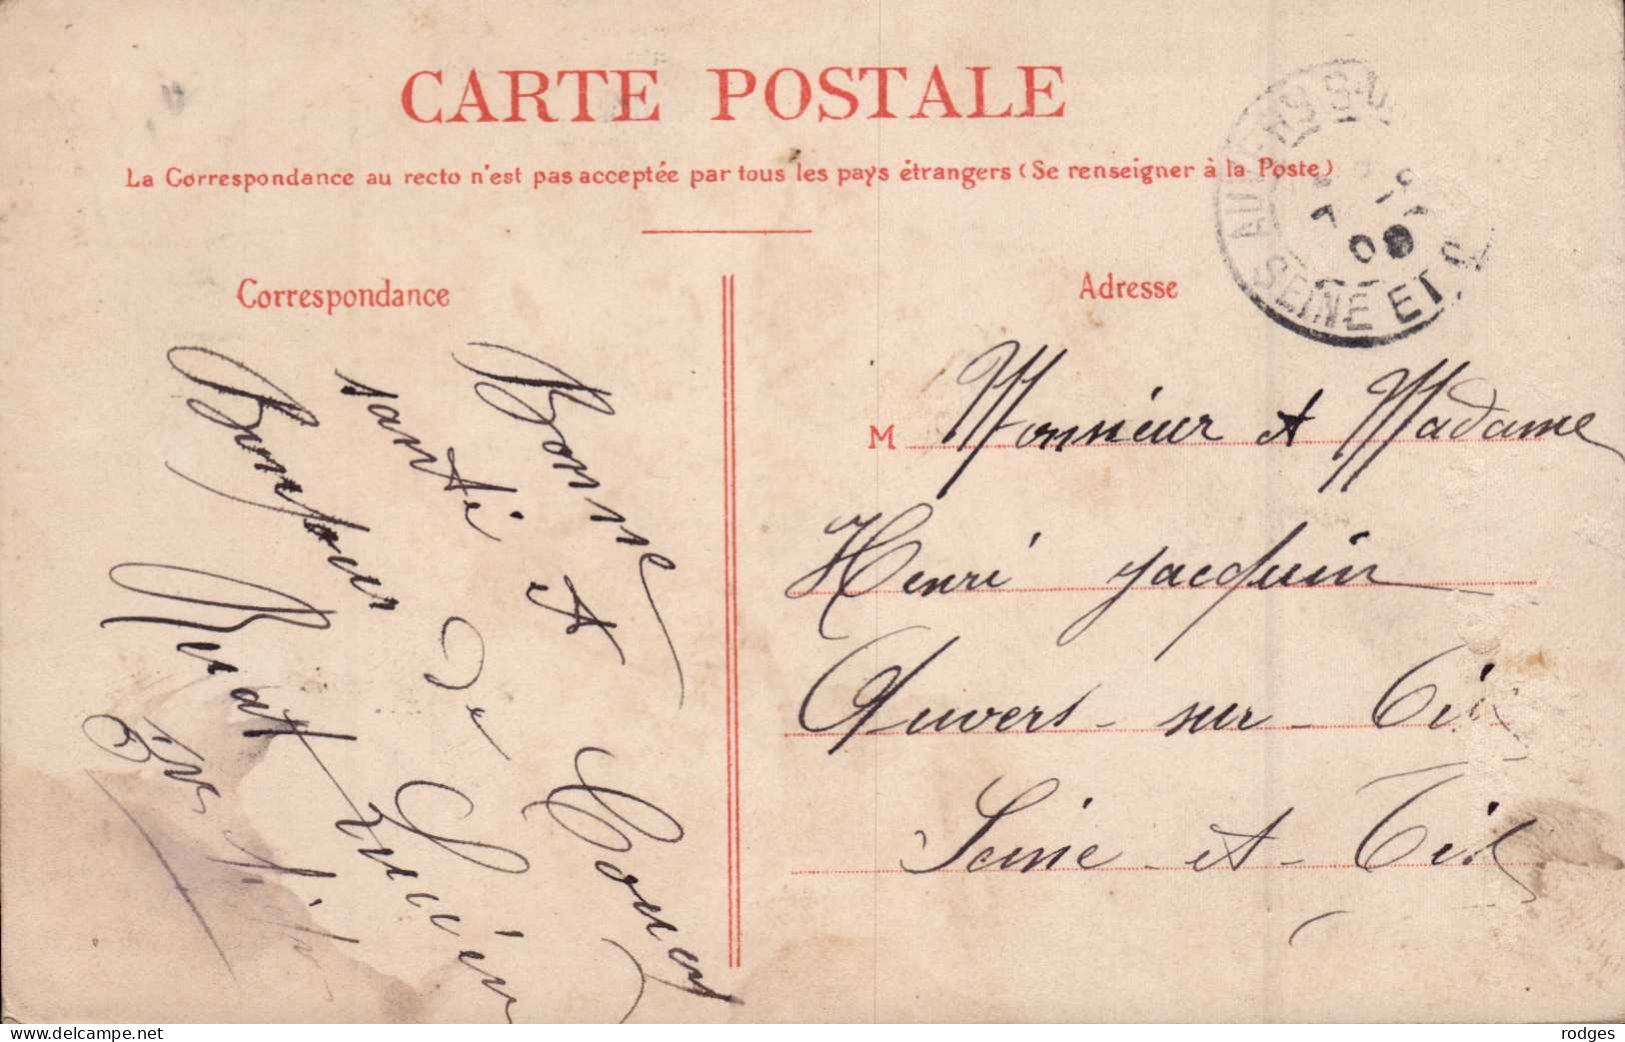 CARTE POSTALE
La Correspondance au recto n'est pas acceptée par tous les pays étrangers (Se renseigner à la Poste)
Correspondance
Adresse
SEINE ET
09
Bonne
santé et
Bonjour de
M Monsieur et Madame
Henri Jacquin
Auvers-sur-Oise
Seine-et-Oise
www.delcampe.net
rodges